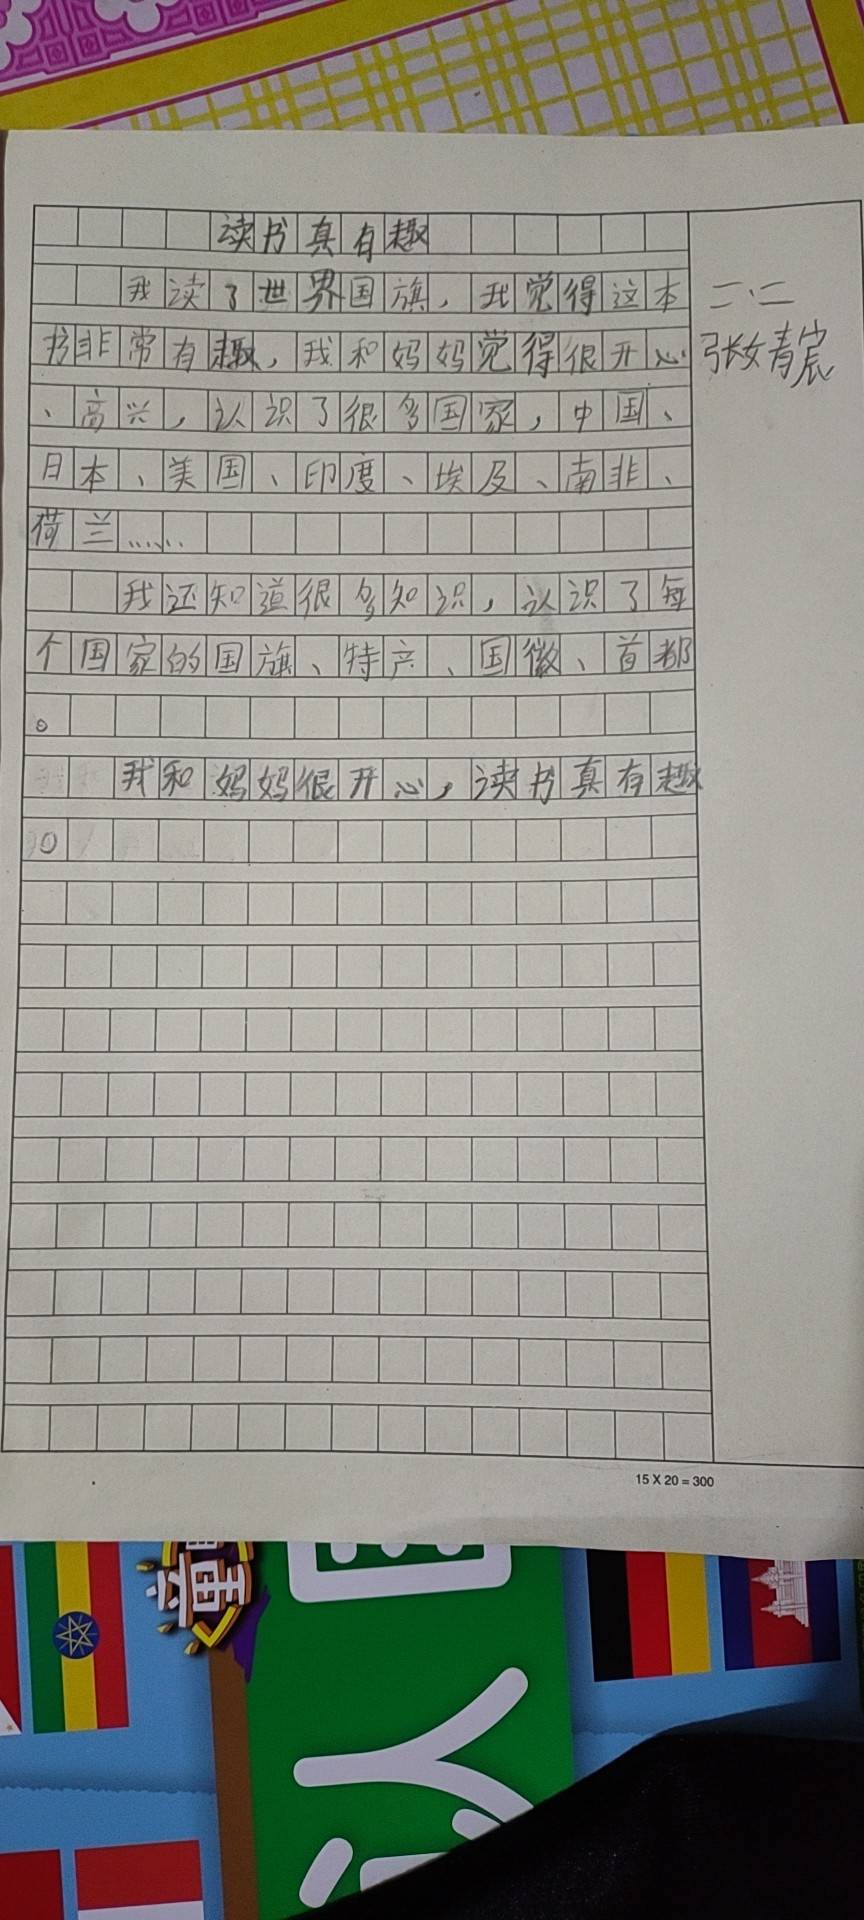 读书真有趣
我读了世界国旗，我觉得这本
书非常有趣，我和妈妈觉得很开心
、高兴，认识了很多国家，中国、
日本、美国、印度、埃及、南非、
荷兰……
我还知道很多知识，认识了每
个国家的国旗、特产、国徽、首都
。
我和妈妈很开心，读书真有趣
。
二、二
张婧宸
15 X 20 = 300